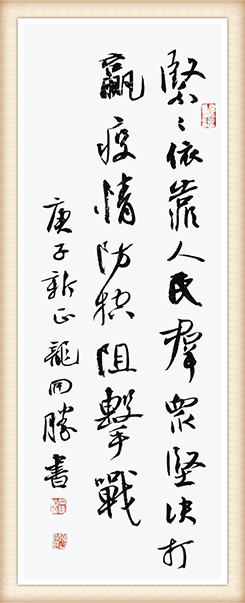 緊〻依靠人民羣眾堅决打
贏疫情防控阻擊戰
庚子新正龍回勝書